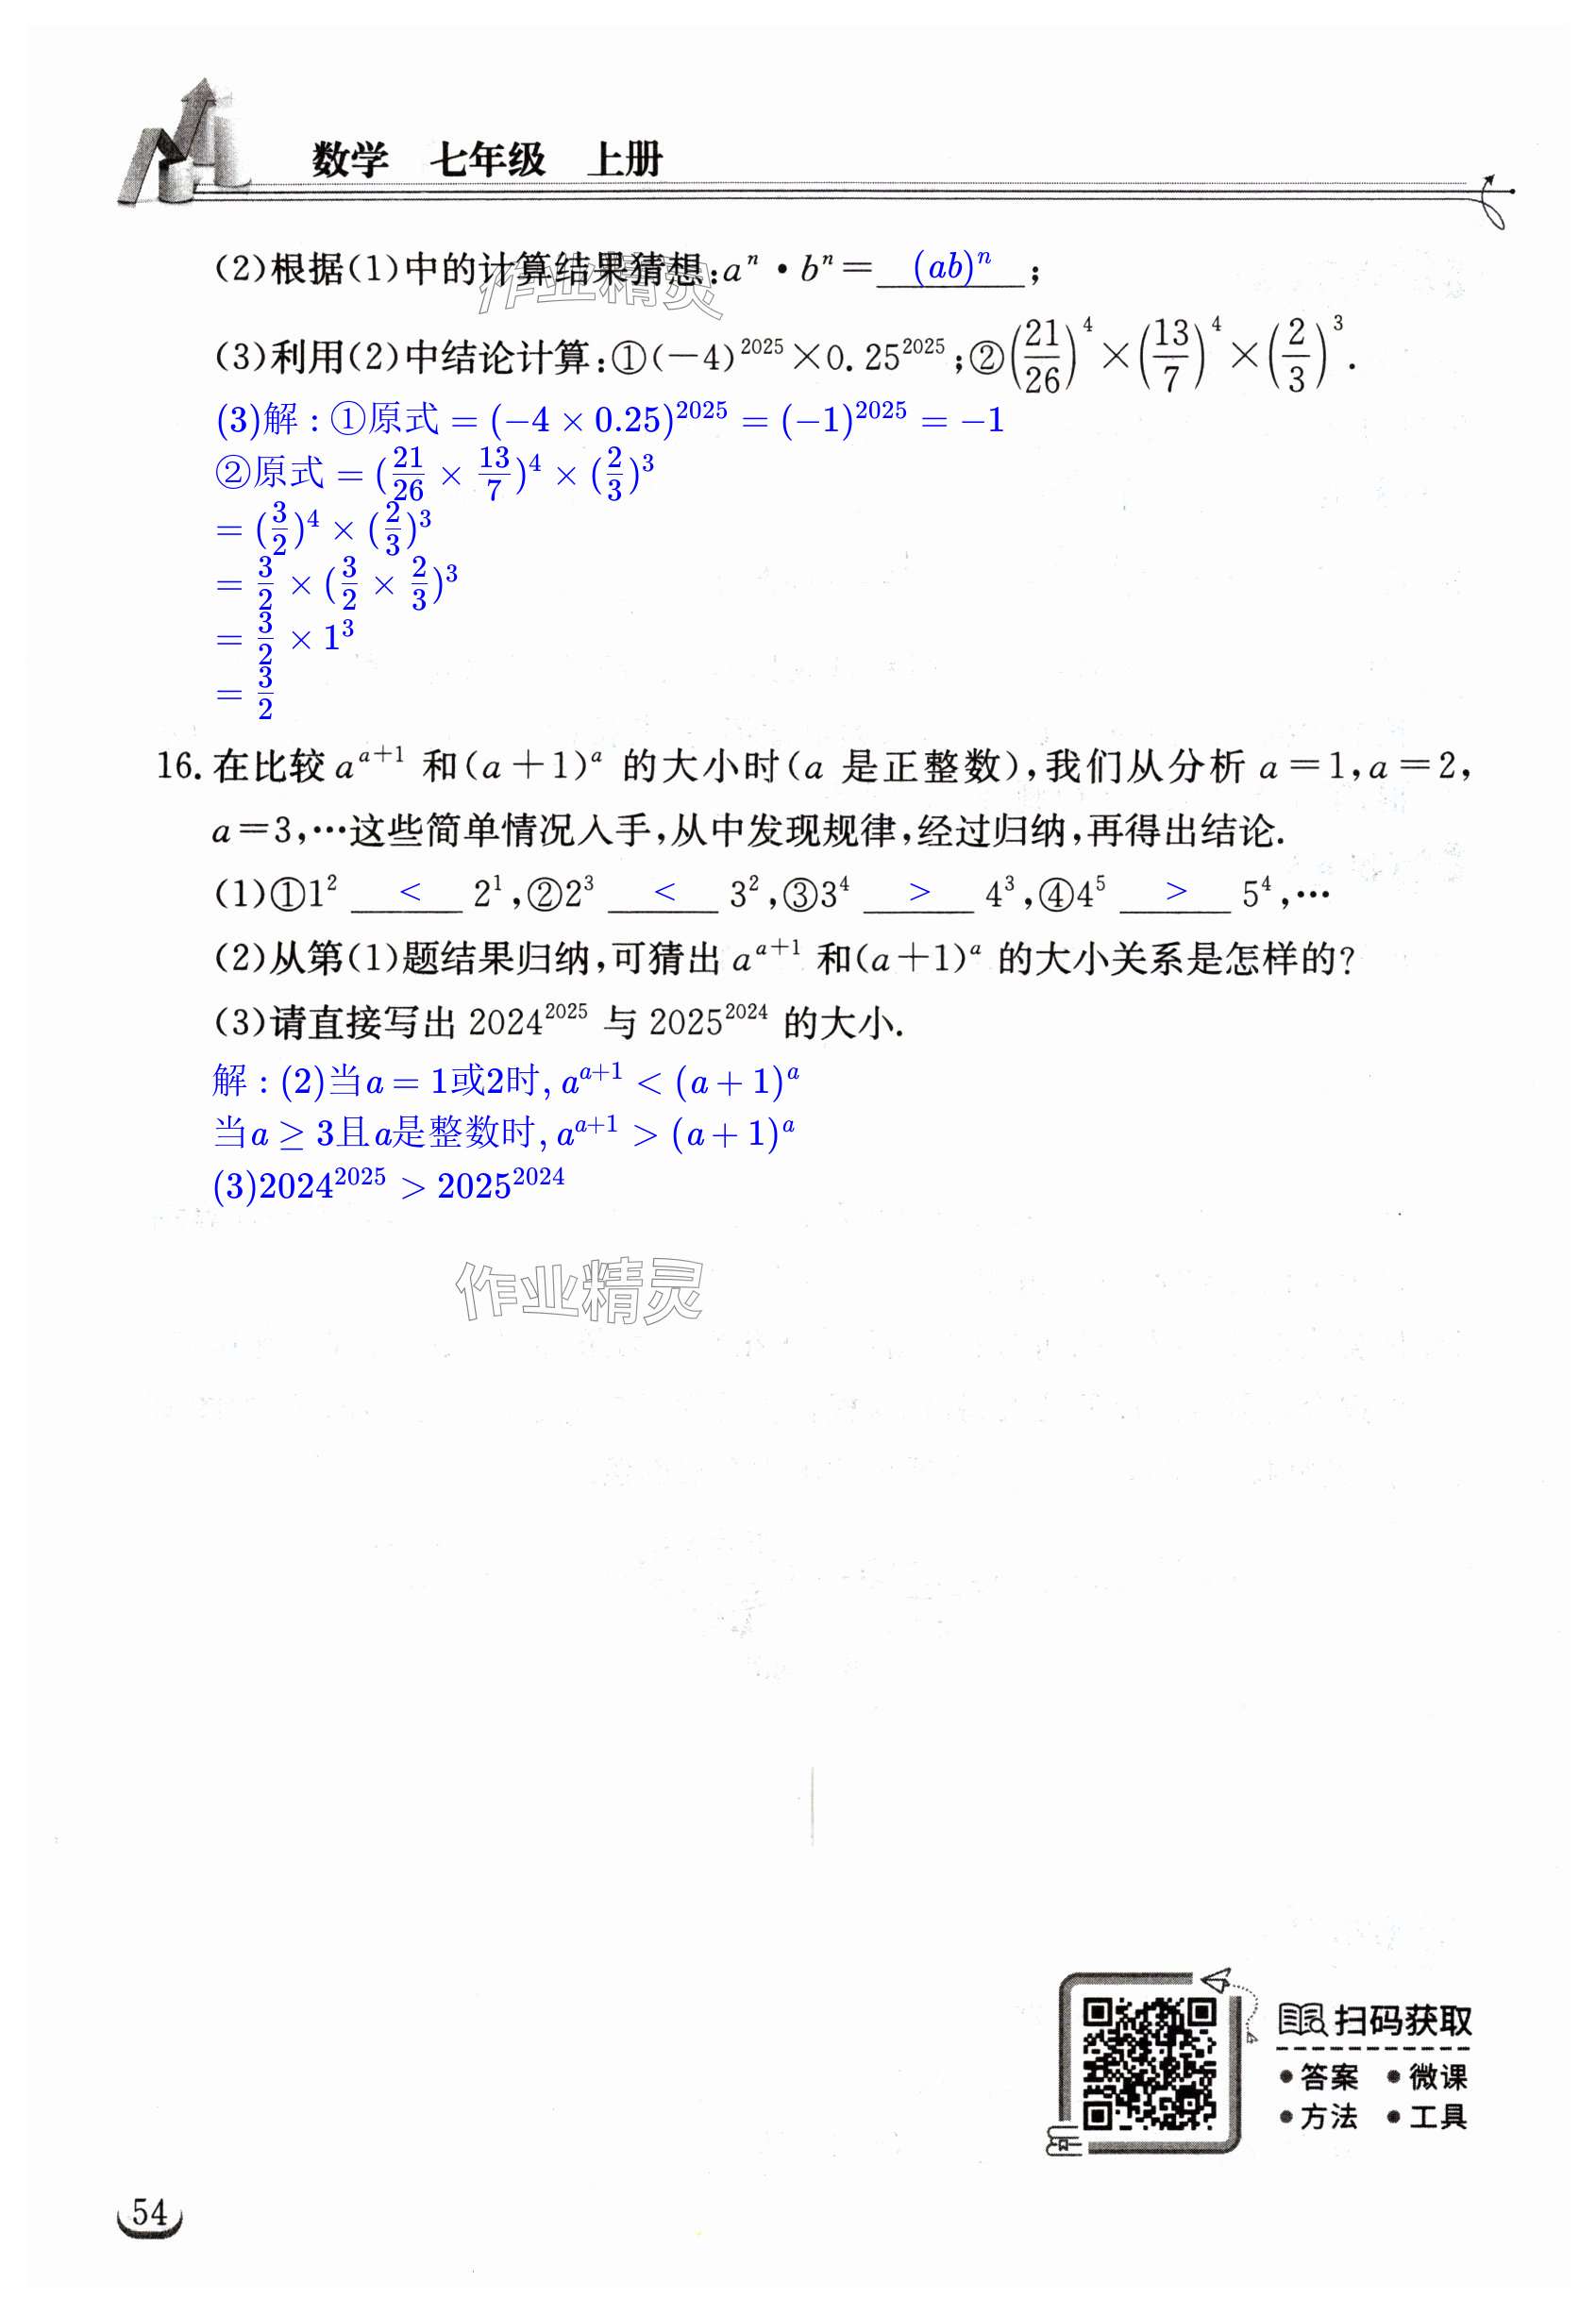 数学 七年级 上册
(2)根据(1)中的计算结果猜想:aⁿ·bⁿ=(ab)ⁿ;
作业精灵
(3)利用(2)中结论计算:①(-4)²⁰²⁵×0.25²⁰²⁵;②(21/26)⁴×(13/7)⁴×(2/3)³.
(3)解:①原式=(-4×0.25)²⁰²⁵=(-1)²⁰²⁵=-1
②原式=(21/26×13/7)⁴×(2/3)³
=(3/2)⁴×(2/3)³
=3/2×(3/2×2/3)³
=3/2×1³
=3/2
16.在比较 aᵃ⁺¹ 和(a+1)ᵃ 的大小时(a 是正整数),我们从分析 a=1,a=2,
a=3,…这些简单情况入手,从中发现规律,经过归纳,再得出结论.
(1)①1² < 2¹,②2³ < 3²,③3⁴ > 4³,④4⁵ > 5⁴,…
(2)从第(1)题结果归纳,可猜出 aᵃ⁺¹ 和(a+1)ᵃ 的大小关系是怎样的?
(3)请直接写出 2024²⁰²⁵ 与 2025²⁰²⁴ 的大小.
解:(2)当a=1或2时,aᵃ⁺¹<(a+1)ᵃ
当a≥3且a是整数时,aᵃ⁺¹>(a+1)ᵃ
(3)2024²⁰²⁵>2025²⁰²⁴
作业精灵
扫码获取
•答案 •微课
•方法 •工具
54